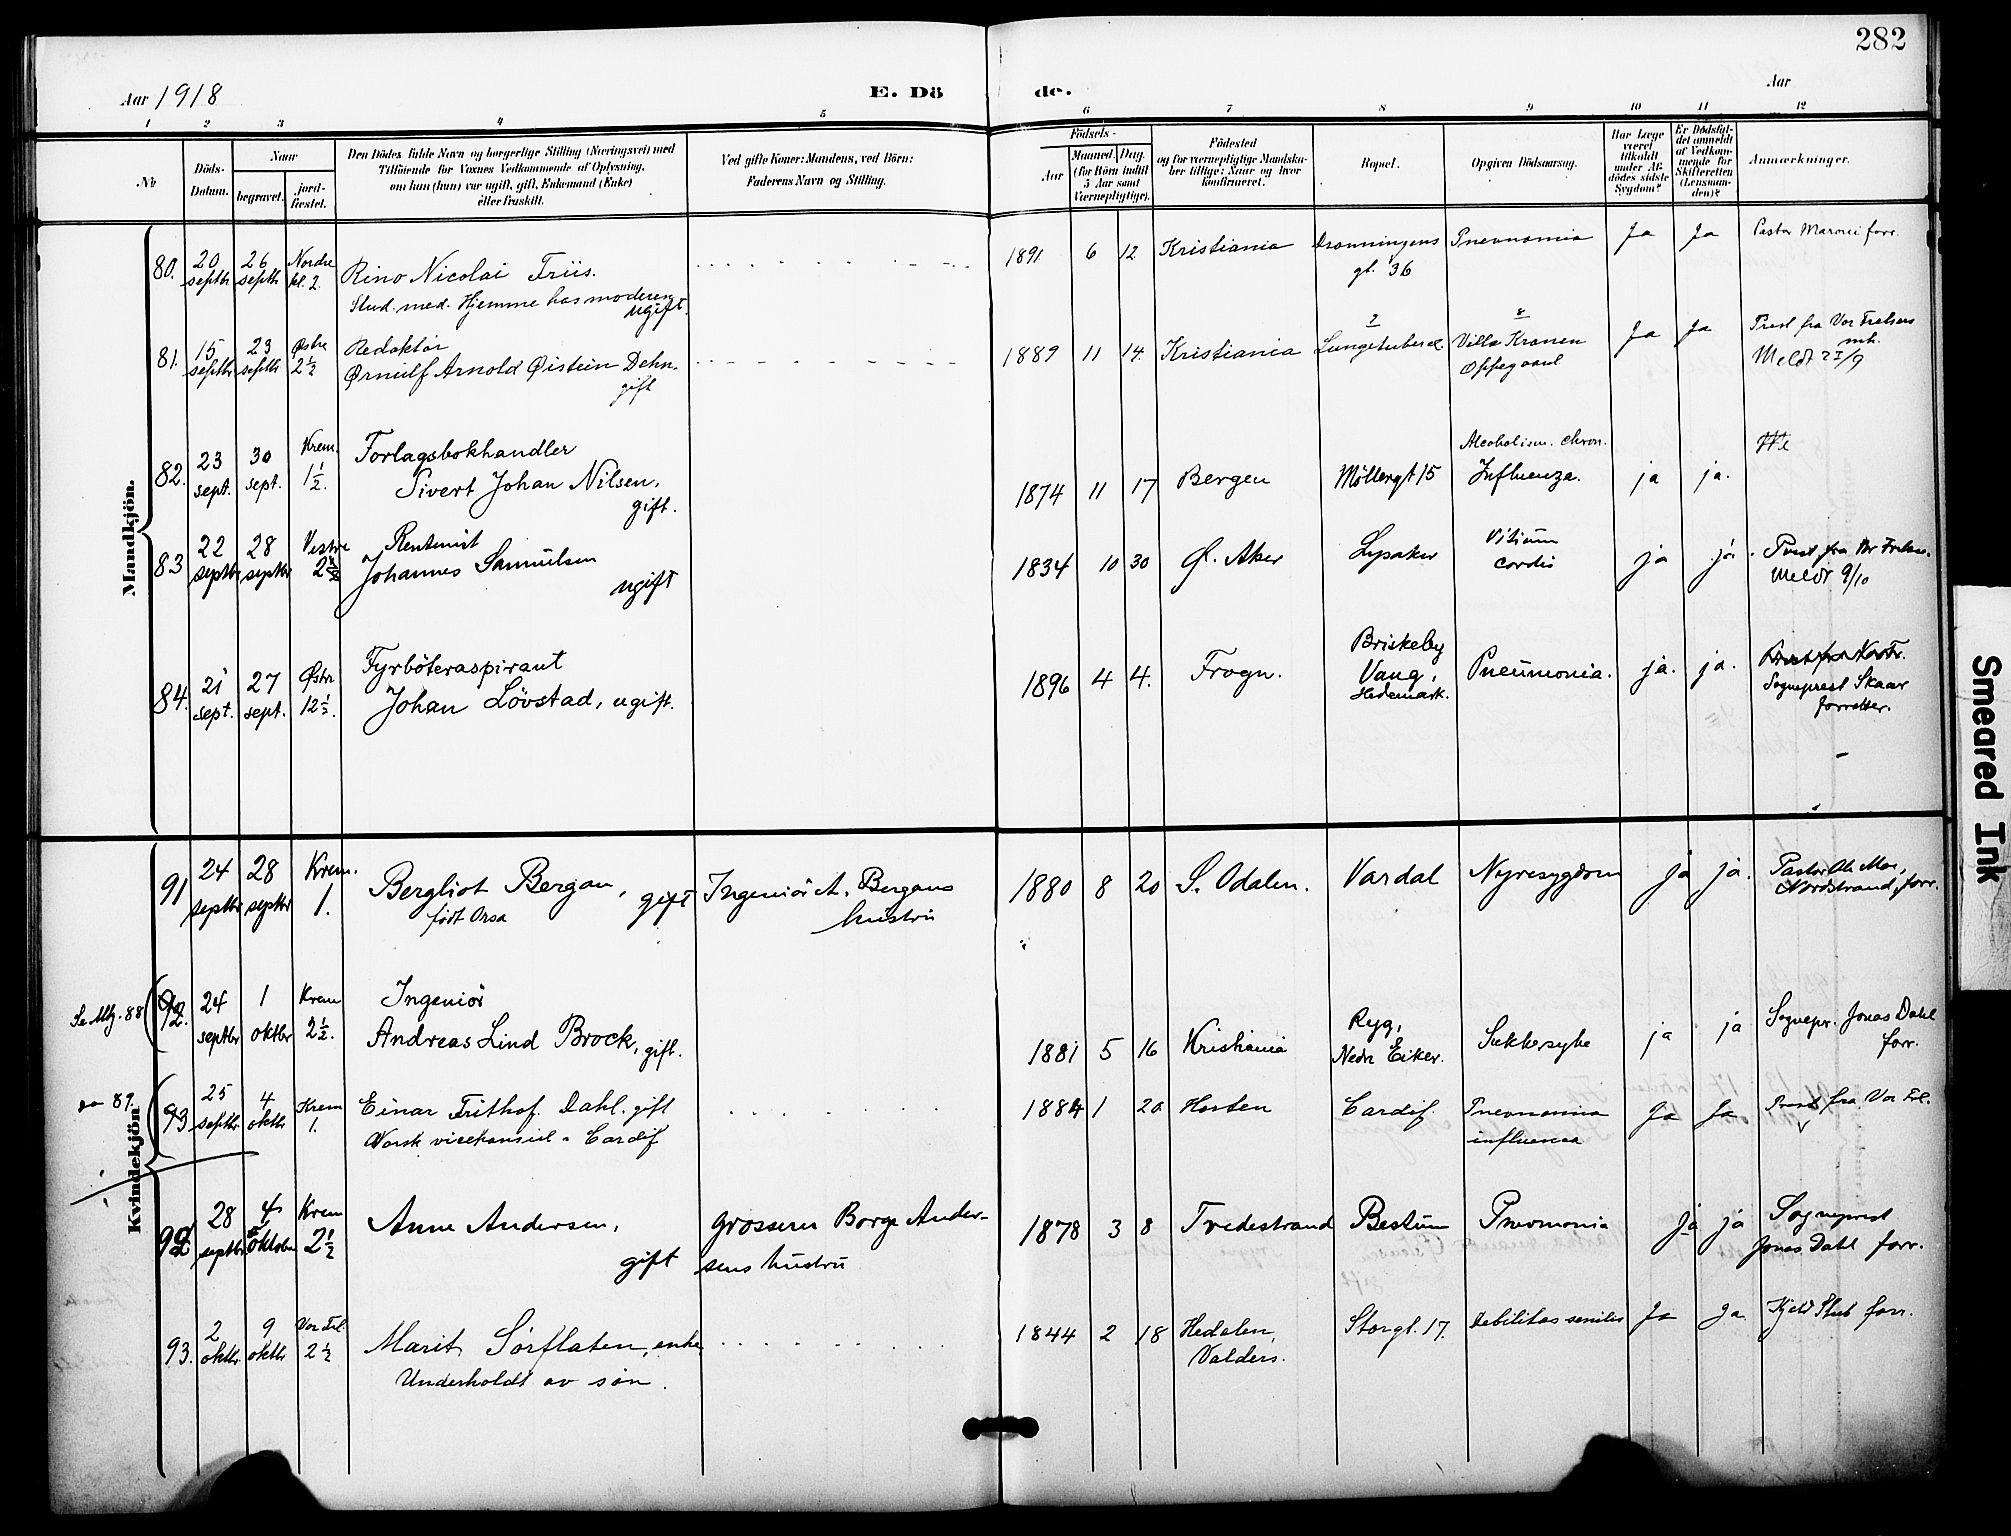 282
Aar 1918
E. Dö
de.
Aar
1 2 3 4 5 6 7 8 9 10 11 12
No
Döds-
Datum.
Naar
begravet.
jord-
fæstet.
Den Dödes fulde Navn og borgerlige Stilling (Næringsvei) med
Tilföiende for Voxnes Vedkommende af Oplysning,
om han (hun) var ugift, gift, Enkemand (Enke)
eller fraskilt.
Ved gifte Koner: Mandens, ved Börn:
Faderens Navn og Stilling.
Födsels-
Aar
Maaned. Dag.
(for Börn indtil
5 Aar samt
Værnepligtige).
Födested
og for værnepligtige Mandska-
ber tillige: Naar og hvor
konfirmeret.
Bopæl.
Opgiven Dödsaarsag.
Har Læge
været
tilkaldt
under Af-
dödes sidste
Sygdom?
Er Dödsfal-
det anmeldt
af Vedkom-
mende for
Skifteretten
(Lensman-
den)?
Anmærkninger.
Mandkjön.
80. 20 septbr 26 septbr Nordre kl. 2. Rino Nicolai Friis.
Stud. med. Hjemme hos moderen
ugift.
1891 6 12 Kristiania Dronningens
gt. 36
Pneunomia Ja Ja Pastor Maroni forr.
81. 15 septbr 23 septbr Østre 2 1/2 Redaktør
Ørnulf Arnold Øistein Dehn.
gift
1889 11 14. Kristiania 2 Lungetuberd. 8 Villa Kranen
Oppegaard
Ja Ja Prest fra Vor Frelsers
mk.
Meldt 21/9
82. 23 sept. 30 sept. Krem. 1 1/2. Forlagsbokhandler
Sivert Johan Nilsen,
gift.
1874 11 17 Bergen Møllergt 15 Alcoholism. chron.
Influenza. ja ja.
83 22 septbr 28 septbr Vestre 2 1/2 Rentenist
Johannes Samuelsen
ugift
1834 10 30 Ø. Aker Lysaker Vitium
cordis
ja ja. Prest fra Vor Frelse.
Meldt 9/10
84. 21 sept. 27 sept. Østre 12 1/2. Fyrböteraspirant
Johan Lövstad, ugift.
1896 4 4. Frogn. Briskeby
Vang,
Hedemark.
Pneumonia. ja. ja. Prest fra Vor Fr.
Sogneprest Skaar
forretter.
Kvindekjön
91 24 septbr 28 septbr Krem. 1. Bergliot Bergan, gift
født Orsa
Ingeniör A. Bergans
hustru
1880 8 20 S. Odalen. Vardal Nyresygdom ja ja. Pastor Ole Moe,
Nordstrand, forr.
Se Mkj. 88 92. 24 septbr 1 oktbr Krem 2 1/2. Ingeniör
Andreas Lind Brock, gift.
1881 5 16 Kristiania Ryg,
Nedr Eiker.
Sukkersyke ja ja Sognepr. Jonas Dahl
forr.
do 89. 93 25 septbr 4 oktbr Krem 1. Einar Frithof. Dahl. gift
Norsk vicekonsul i Cardif
1884 1 20 Horten Cardif. Pneunomina
influensa
Ja Ja Prest fra Vor Frl.
92 28 septbr 4 oktober Krem 2 1/2 Anne Andersen,
gift
grosserer Borge Ander-
sens hustru
1878 3 8 Tvedestrand Bestum Pneomonia ja ja Sogneprest
Jonas Dahl forr.
93. 2 oktbr. 9 oktbr Vor Frl. 2 1/2 Marit Sørflaten, enke
Underholdt av søn.
1844 2 18 Hedalen,
Valders.
Storgt. 17. Debilitas senilis Ja Ja Kjeld Stub forr.
Smeared Ink